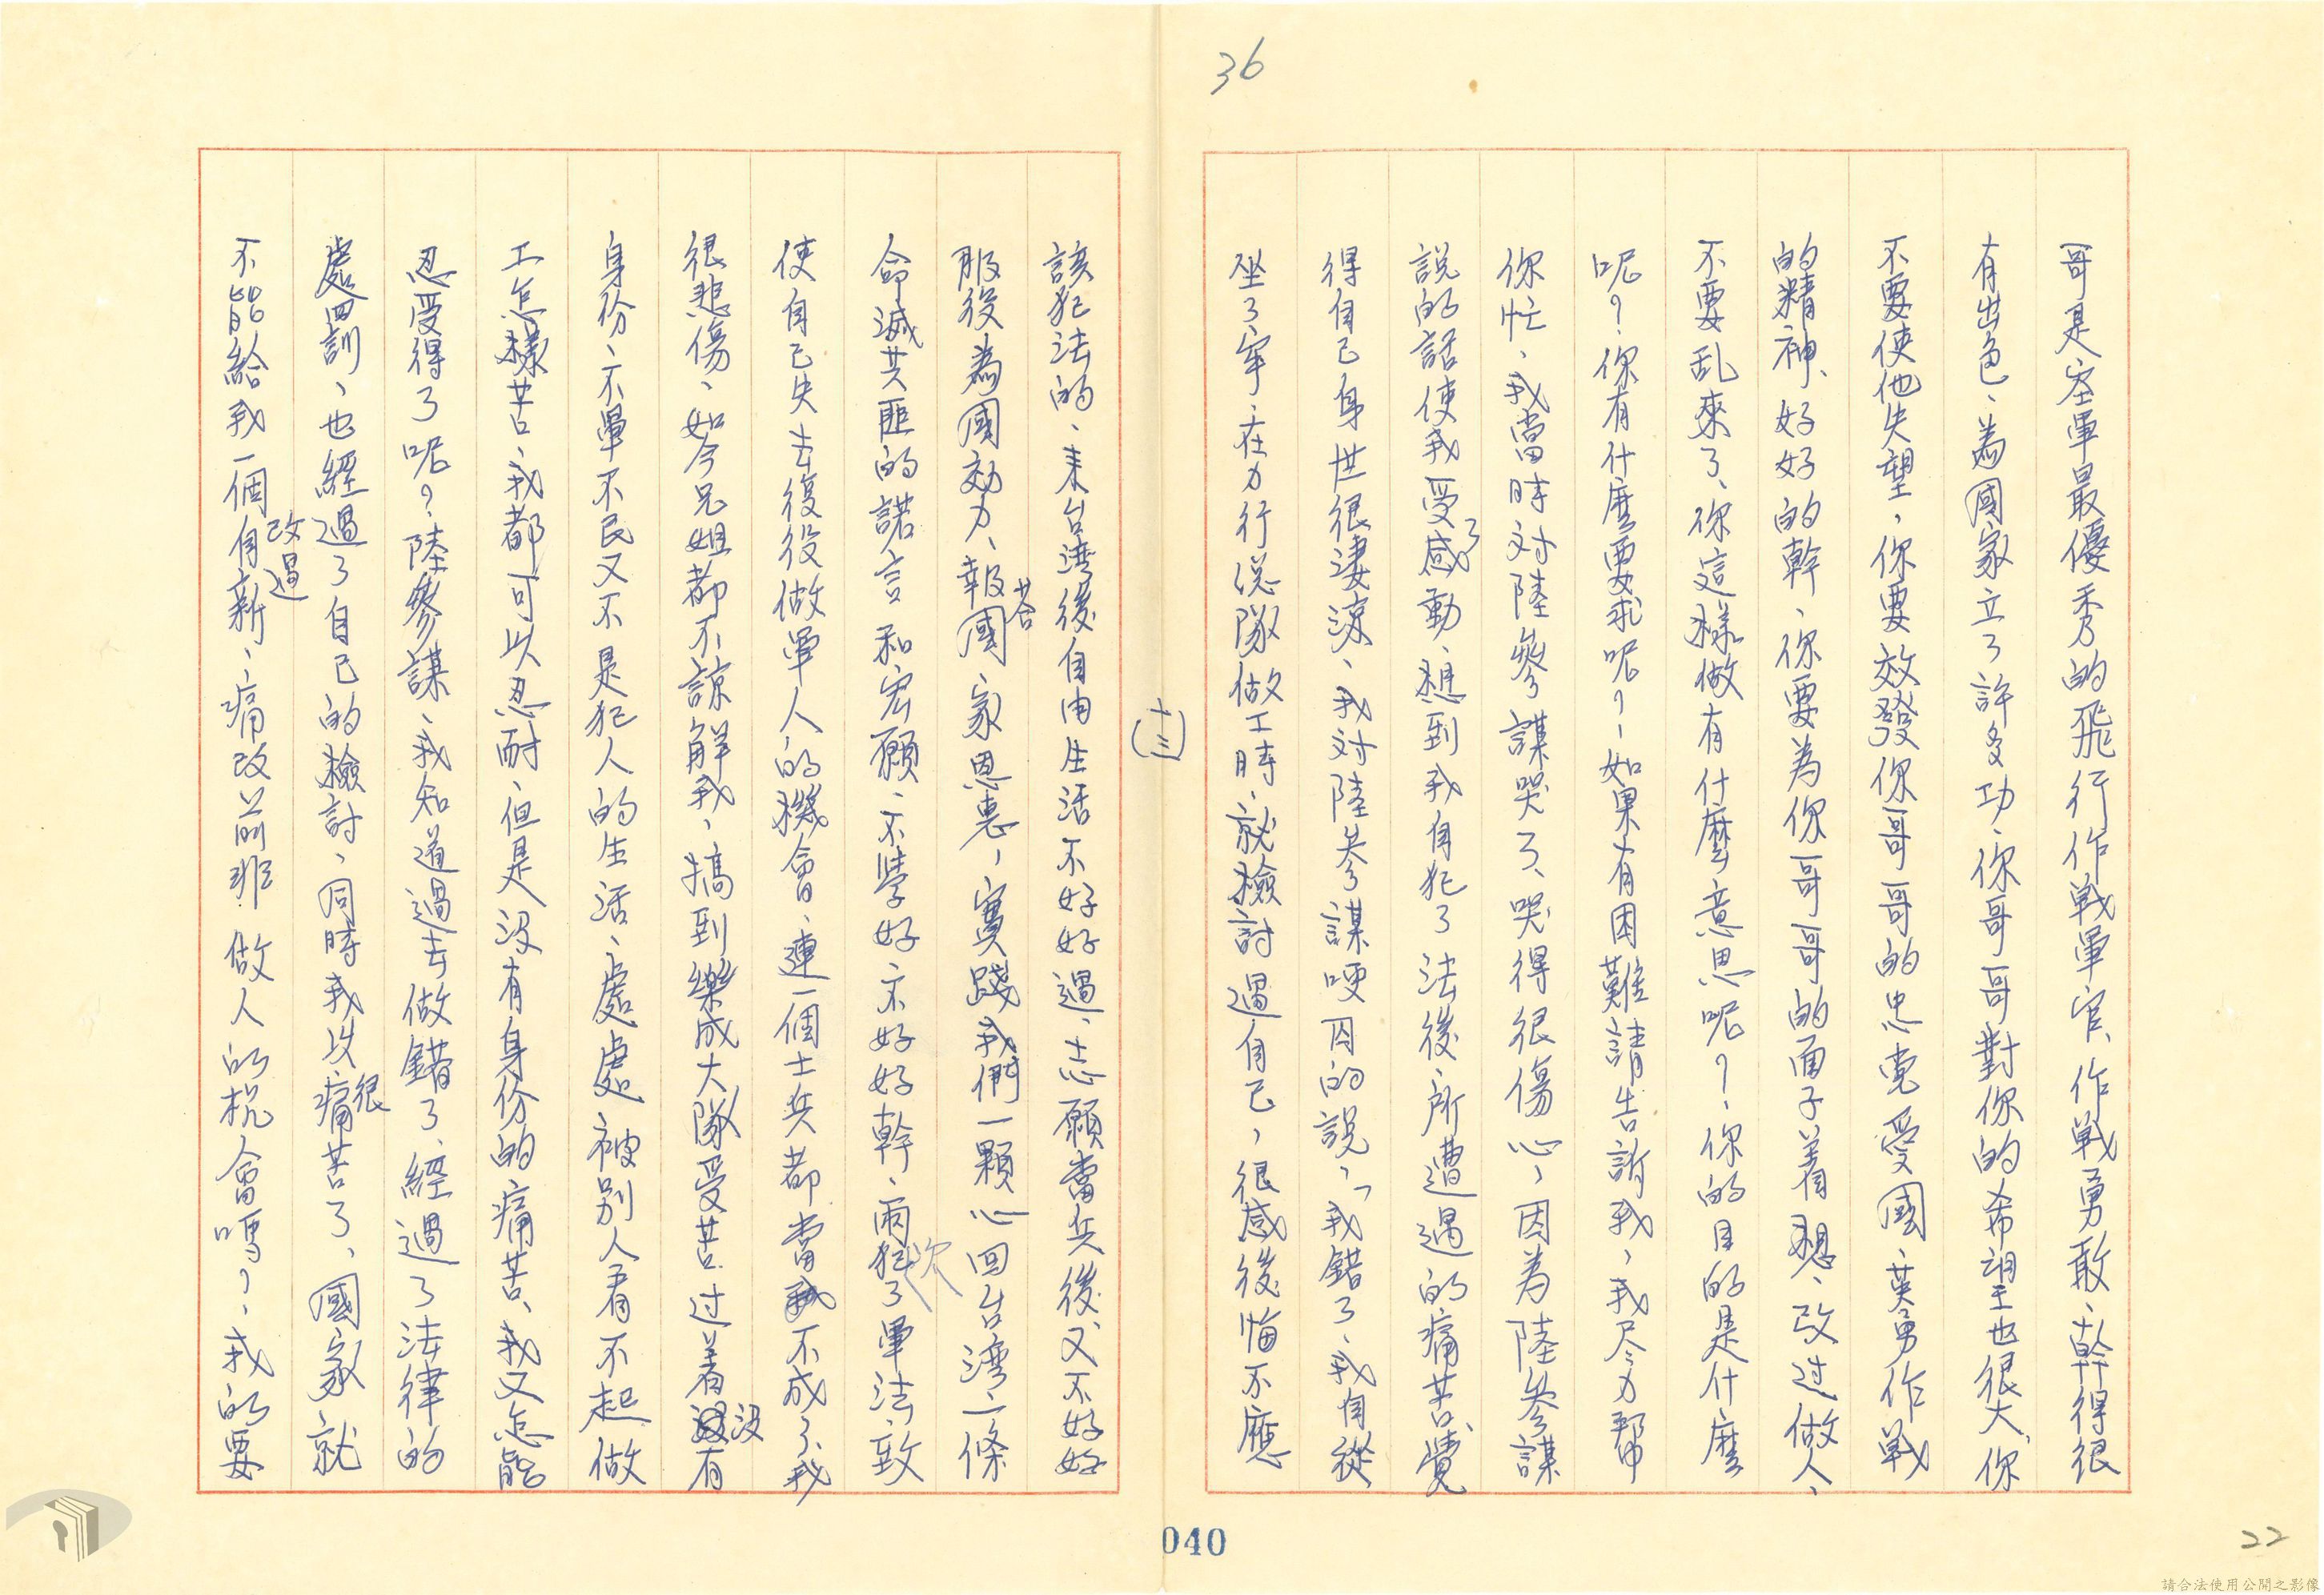 36
哥是空軍最優秀的飛行作戰軍官、作戰勇敢、幹得很
有出色、為國家立了許多功、你哥哥對你的希望也很大、你
不要使他失望，你要效發你哥哥的忠党受國、英勇作戰
的精神、好好的幹、你要為你哥哥的面子着想、改过做人、
不要乱來了、你這樣做有什麼意思呢？你的目的是什麼
呢？你有什麼要求呢？如果有困難請告訴我，我尽力帮
你忙、我當時対陸參謀哭了、哭得很傷心，因為陸参謀
說的話使我受感了動、想到我自犯了法後、所遭遇的痛苦、覺
得自己身世很凄涼、我対陸参謀哽囚的說，「我錯了、我自從
坐了牢、在力行總隊做工時、就檢討過自己，很感後悔不應
(十三)
該犯法的、来台湾後自由生活不好好過、志願當兵後、又不好好
服役為國効力、報荅國家恩惠，實踐我們一顆心回台灣、一條
命滅共匪的諾言和宏願、不學好、不好好幹、兩次犯了軍法、致
使自己失去復役做軍人的機會、連一個士兵都當不成了、我
很悲傷、如今兄姐都不諒解我，搞到樂成大隊受苦、过着没有
身份、不軍不民又不是犯人的生活、處處被别人看不起、做
工怎樣苦、我都可以忍耐、但是没有身份的痛苦、我又怎能
忍受得了呢？陸參謀、我知道過去做錯了、經過了法律的
處罰、也經過了自己的檢討，同時我以很痛苦了、國家就
不能給我一個改過自新、痛改前非做人的机會嗎？我的要
040
22
請合法使用公開之影像